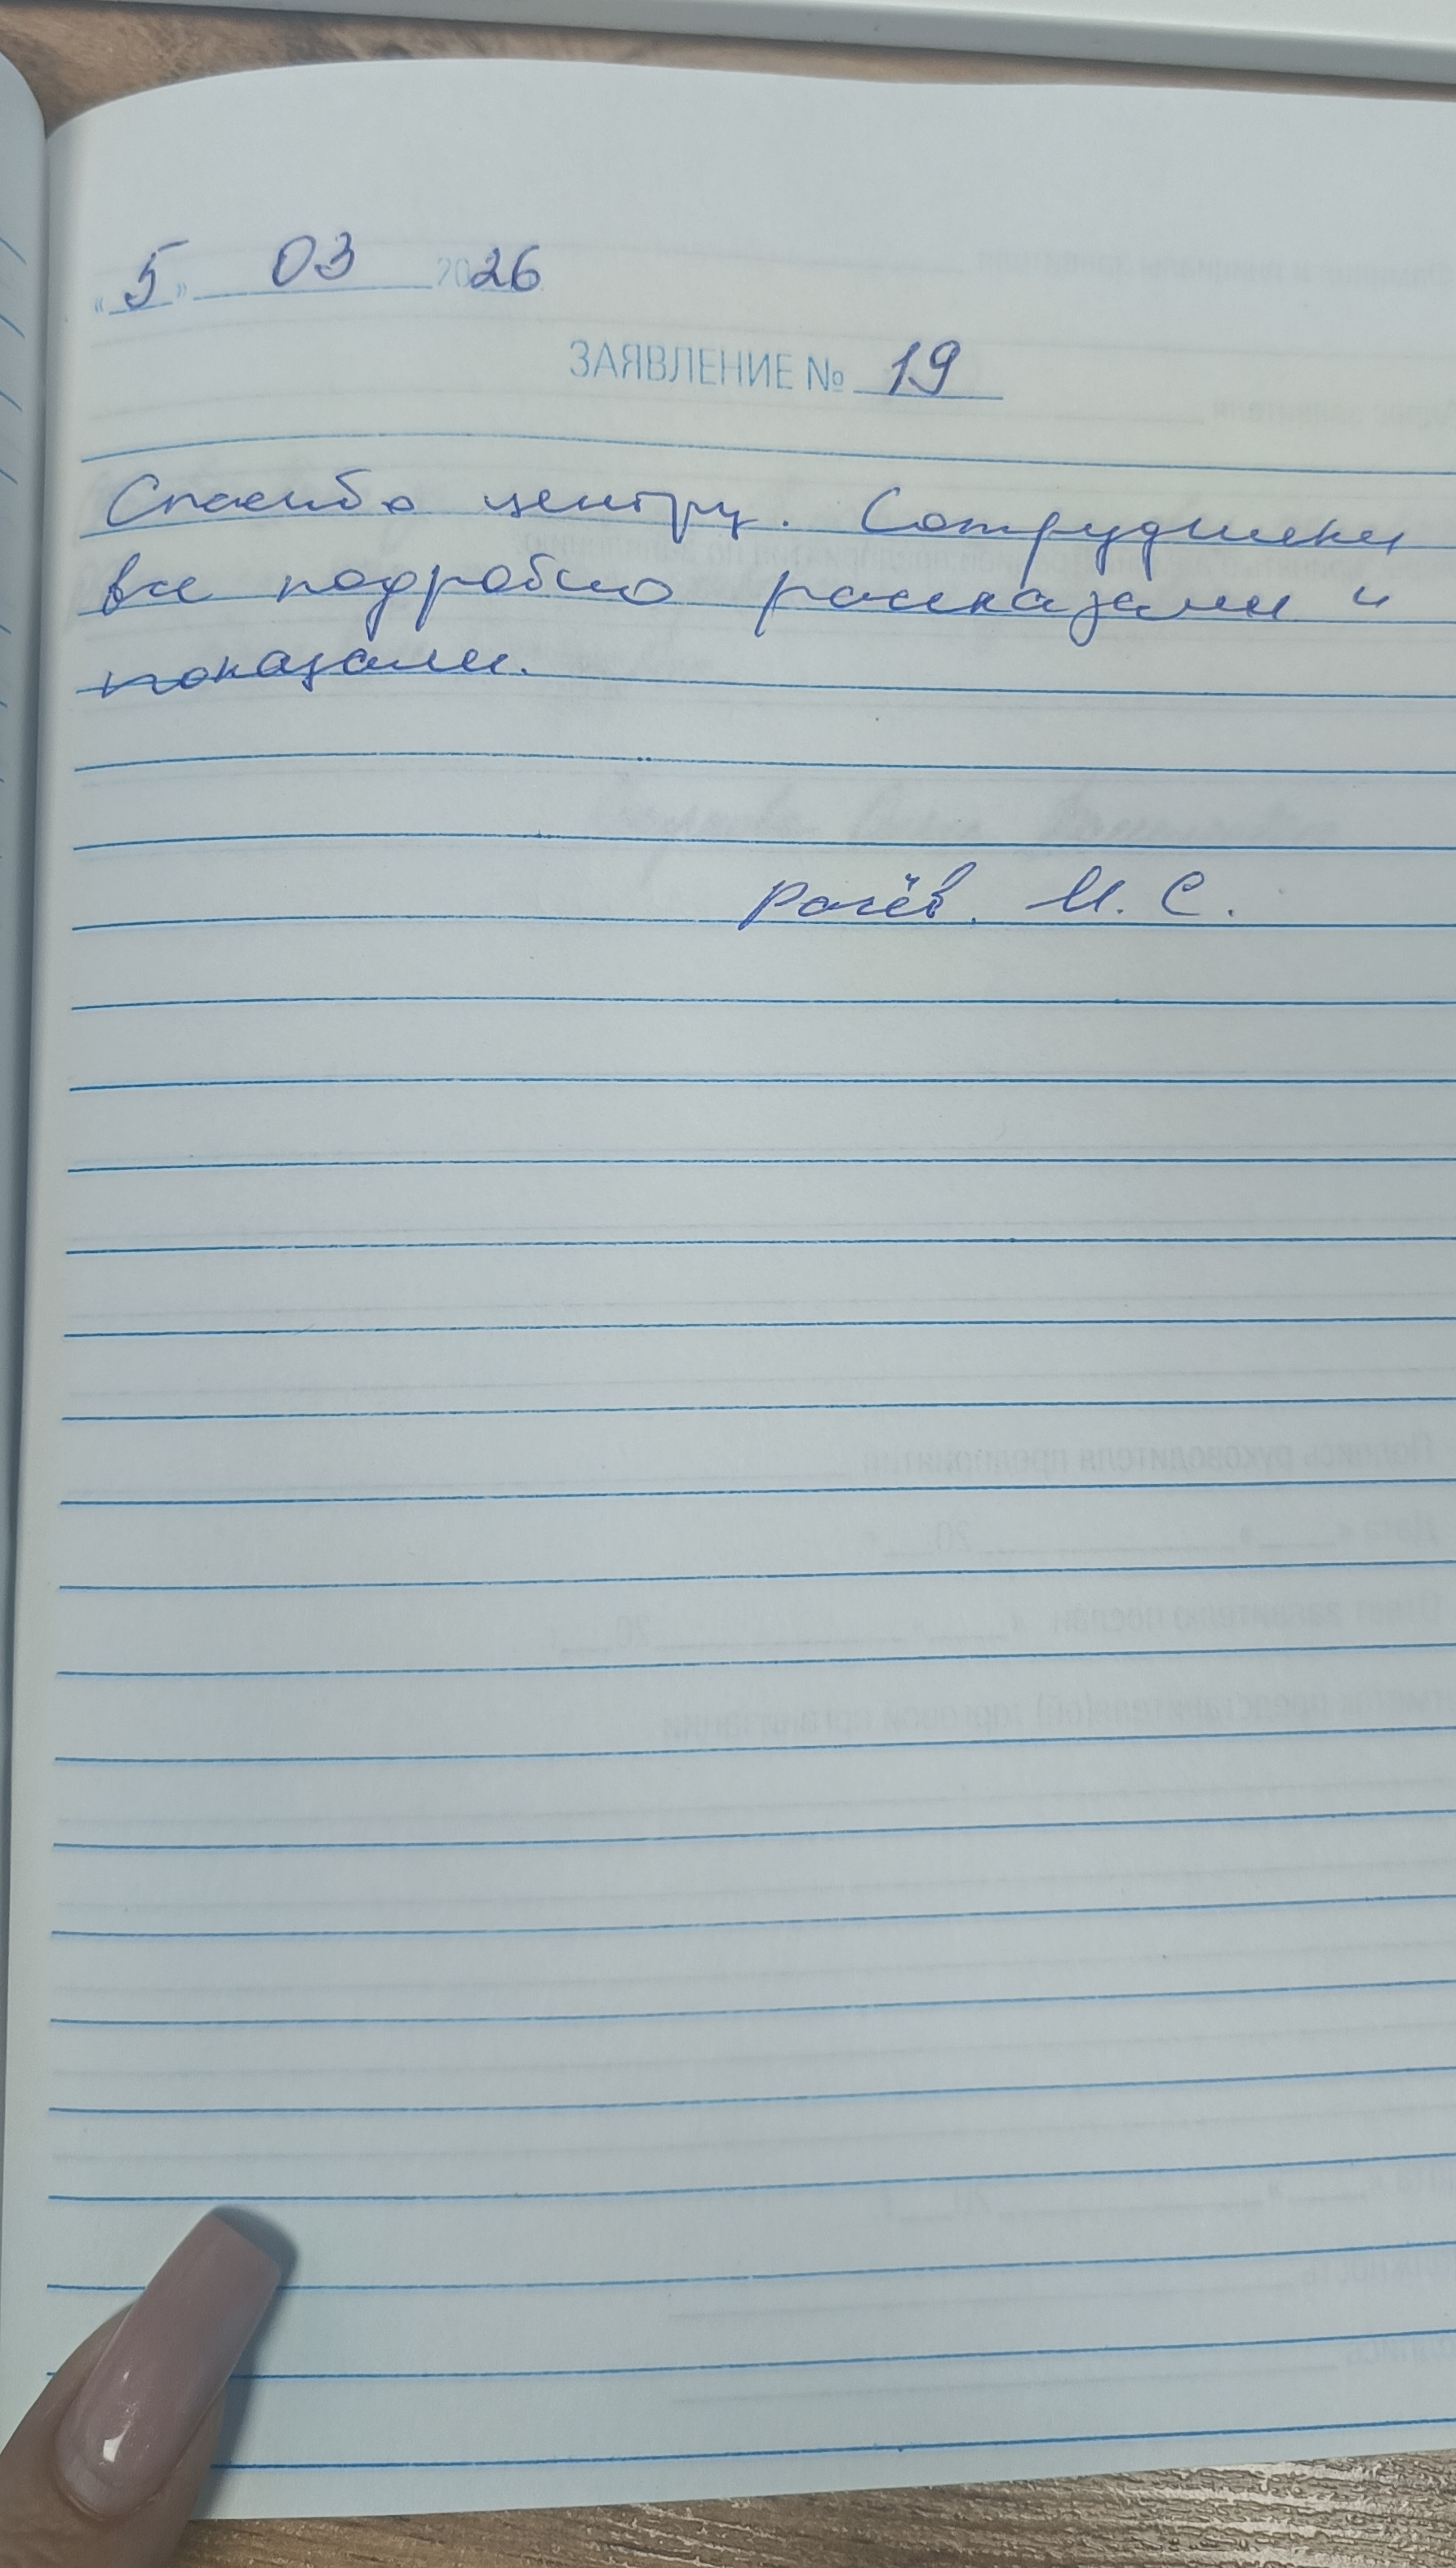 «5» 03 2026
ЗАЯВЛЕНИЕ № 19
Спасибо центру. Сотрудники
все подробно рассказали и
показали.
М. С.